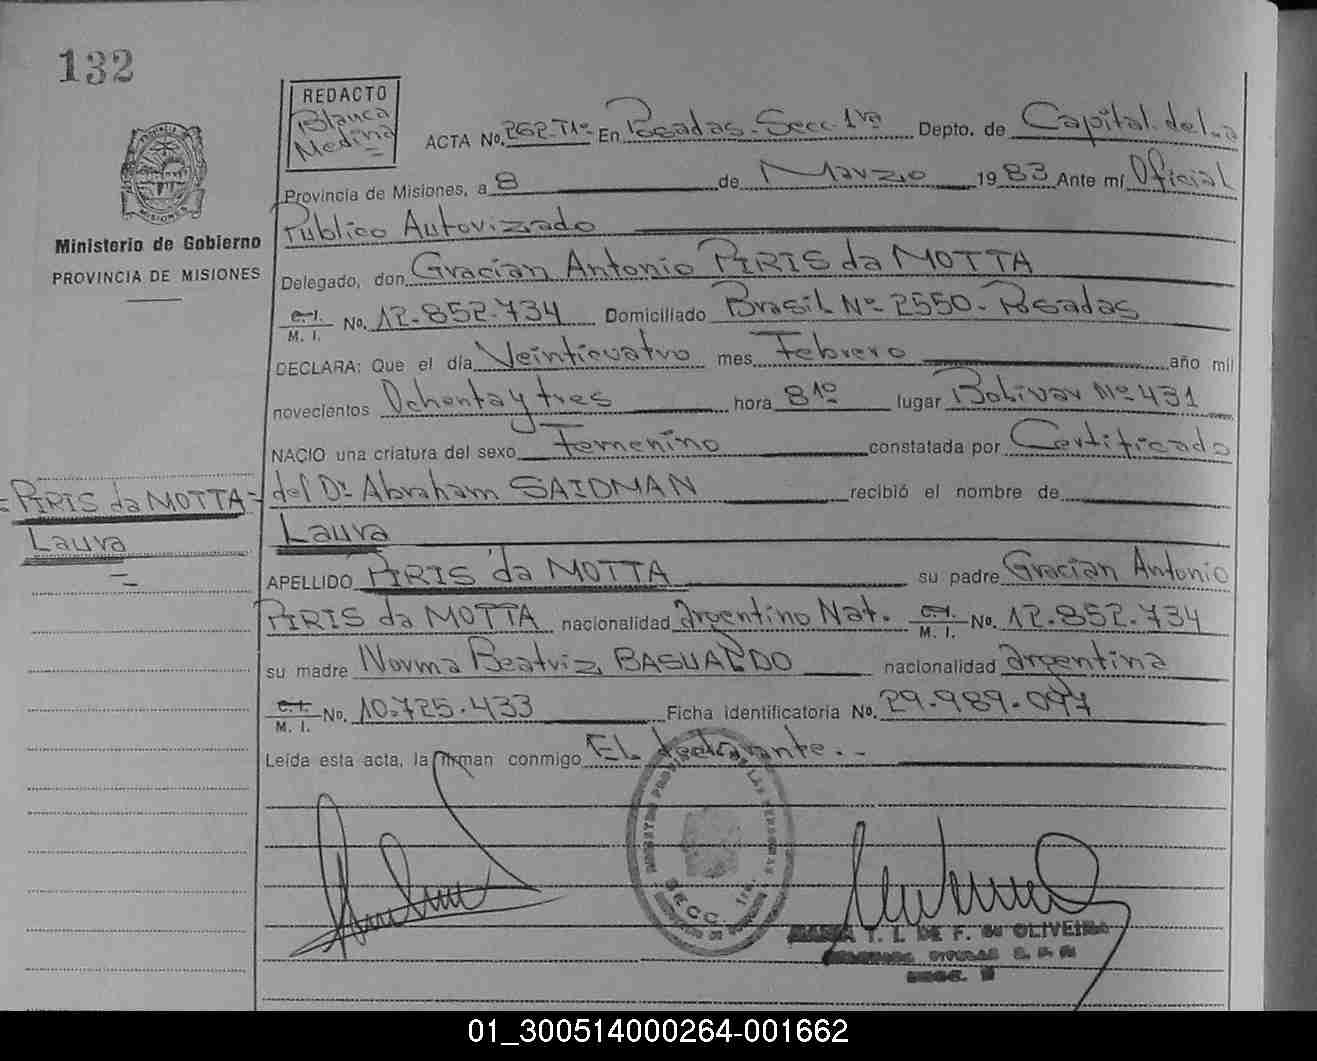 132
REDACTO
Blanca
Medina
ACTA No. 262-T1º En Posadas-Secc. 1ra Depto. de Capital de la
Provincia de Misiones, a 8 de Marzo 1983 Ante mí Oficial
Público Autorizado
Ministerio de Gobierno
PROVINCIA DE MISIONES
Delegado, don Gracian Antonio PIRIS da MOTTA
C. I.
M. I. No. 12.852.734 Domiciliado Brasil Nº 2550- Posadas
DECLARA: Que el día Veinticuatro mes Febrero año mil
novecientos Ochenta y tres hora 8 1º lugar Bolívar Nº 431
NACIO una criatura del sexo Femenino constatada por Certificado
del Dr. Abraham SAIDMAN recibió el nombre de
Laura
PIRIS da MOTTA
Laura
APELLIDO PIRIS da MOTTA su padre Gracian Antonio
PIRIS da MOTTA nacionalidad argentino Nat. C. I.
M. I. No. 12.852.734
su madre Norma Beatriz BASUALDO nacionalidad argentina
C. I.
M. I. No. 10.725.433 Ficha identificatoria No. 29.989.097
Leída esta acta, la firman conmigo El declarante.-
SECC. 1ra.
MARIA T. L. DE F. DE OLIVEIRA
01_300514000264-001662